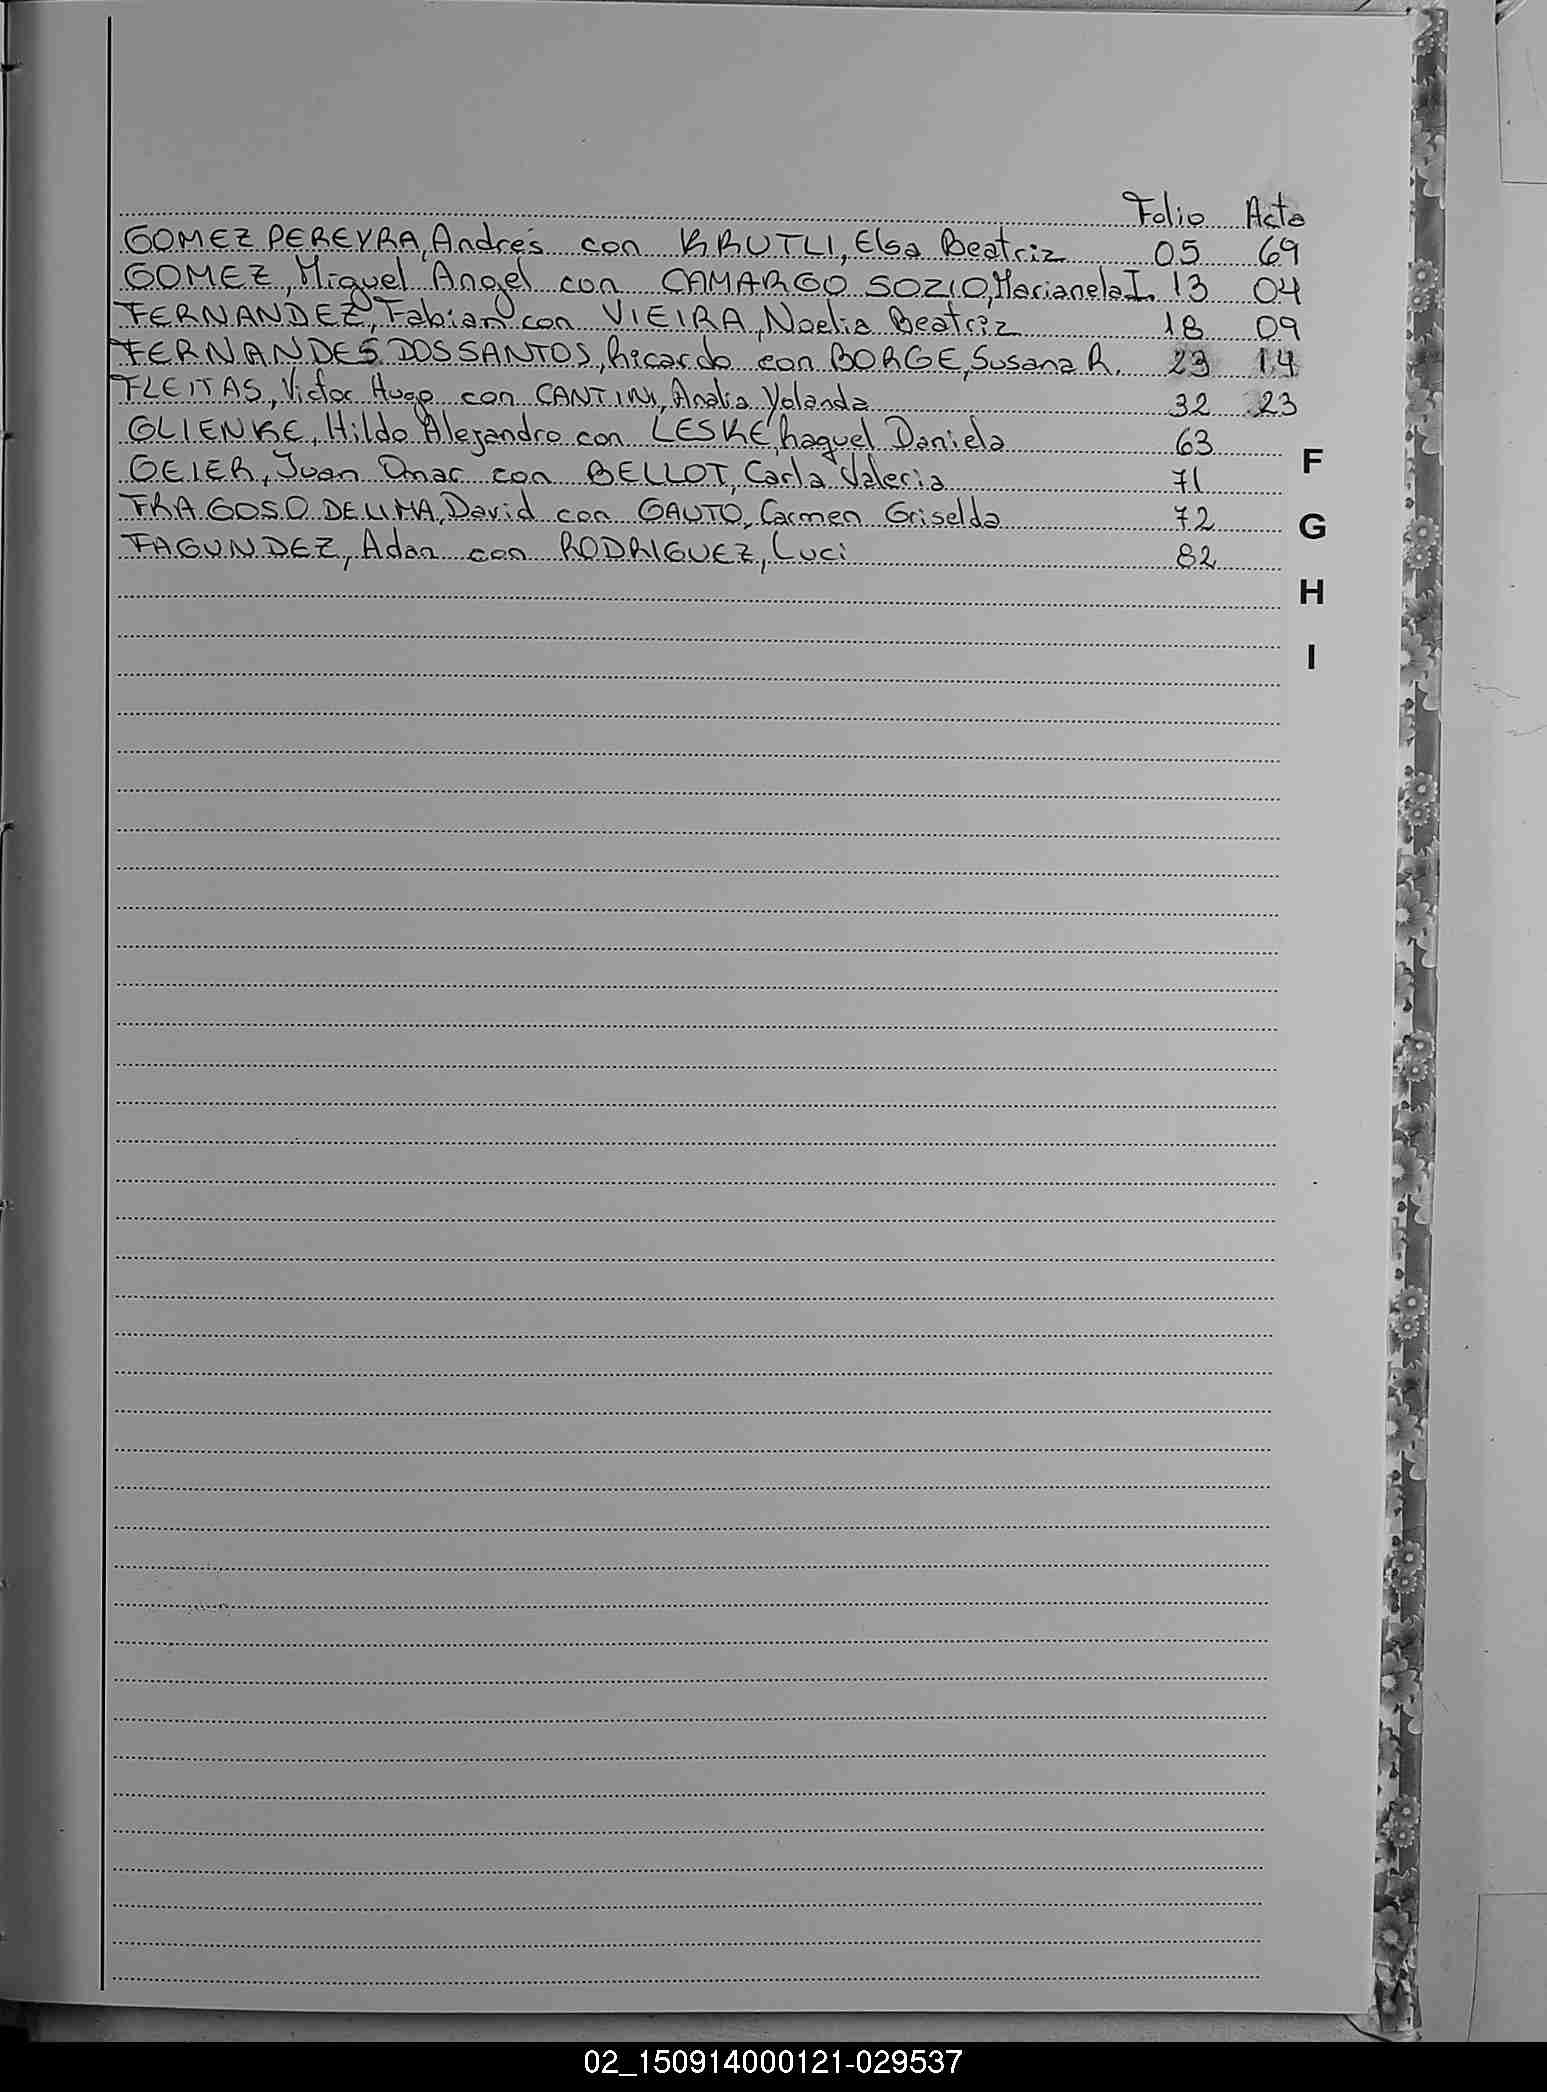 Folio Acta
GOMEZ PEREYRA, Andrés con KRUTLI, Elsa Beatriz 05 69
GOMEZ, Miguel Angel con CAMARGO SOZIO, Marianela I. 13 04
FERNANDEZ, Fabian con VIEIRA, Noelia Beatriz 18 09
FERNANDES DOS SANTOS, Ricardo con BORGE, Susana R. 23 14
FLEITAS, Victor Hugo con CANTINI, Analia Yolanda 32 23
GLIENKE, Hildo Alejandro con LESKE, Raquel Daniela 63
GEIER, Juan Omar con BELLOT, Carla Valeria 71
FRAGOSO DE LIMA, David con GAUTO, Carmen Griselda 72
FAGUNDEZ, Adan con RODRIGUEZ, Luci 82
F
G
H
I
02_150914000121-029537